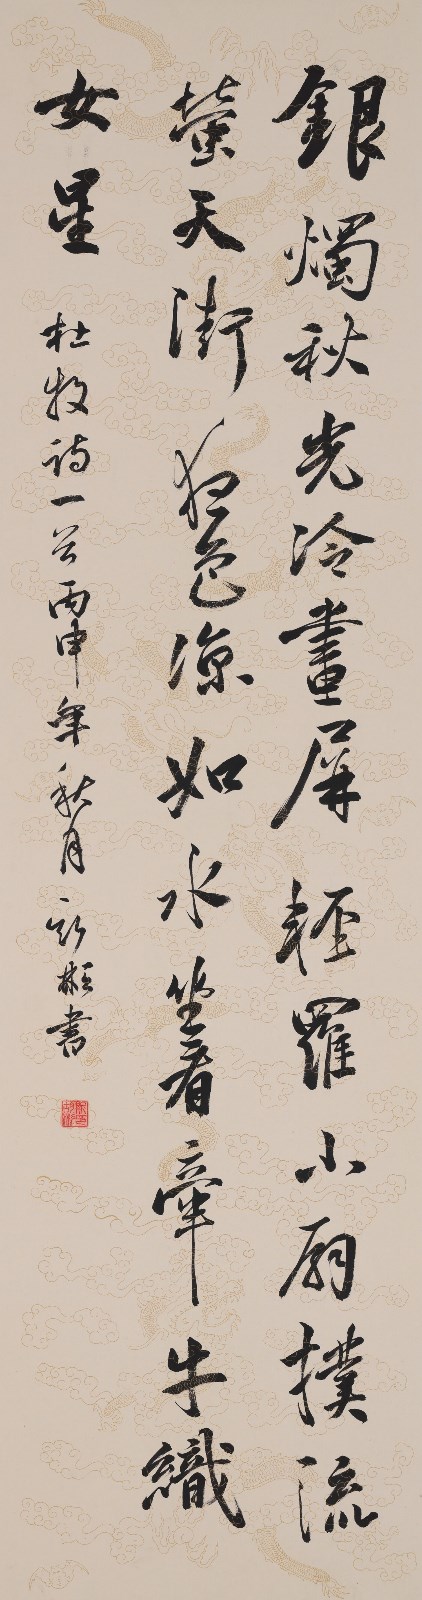 銀燭秋光冷畫屏輕羅小扇撲流
螢天街夜色涼如水坐看牽牛織
女星
杜牧詩一首丙申年秋月
彬書